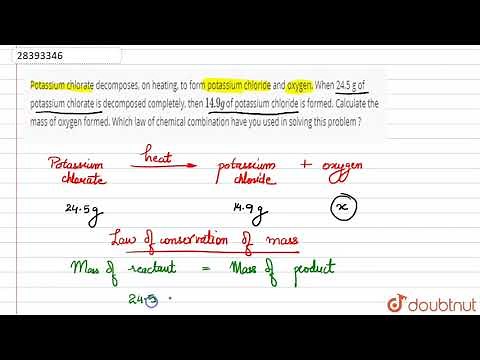 28393346
Potassium chlorate decomposes, on heating, to form potassium chloride and oxygen. When 24.5 g of
potassium chlorate is decomposed completely, then 14.9g of potassium chloride is formed. Calculate the
mass of oxygen formed. Which law of chemical combination have you used in solving this problem ?
Potassium chlorate heat potassium chloride + oxygen
24.5g 14.9g x
Law of conservation of mass
Mass of reactant = Mass of product
24.5
doubtnut